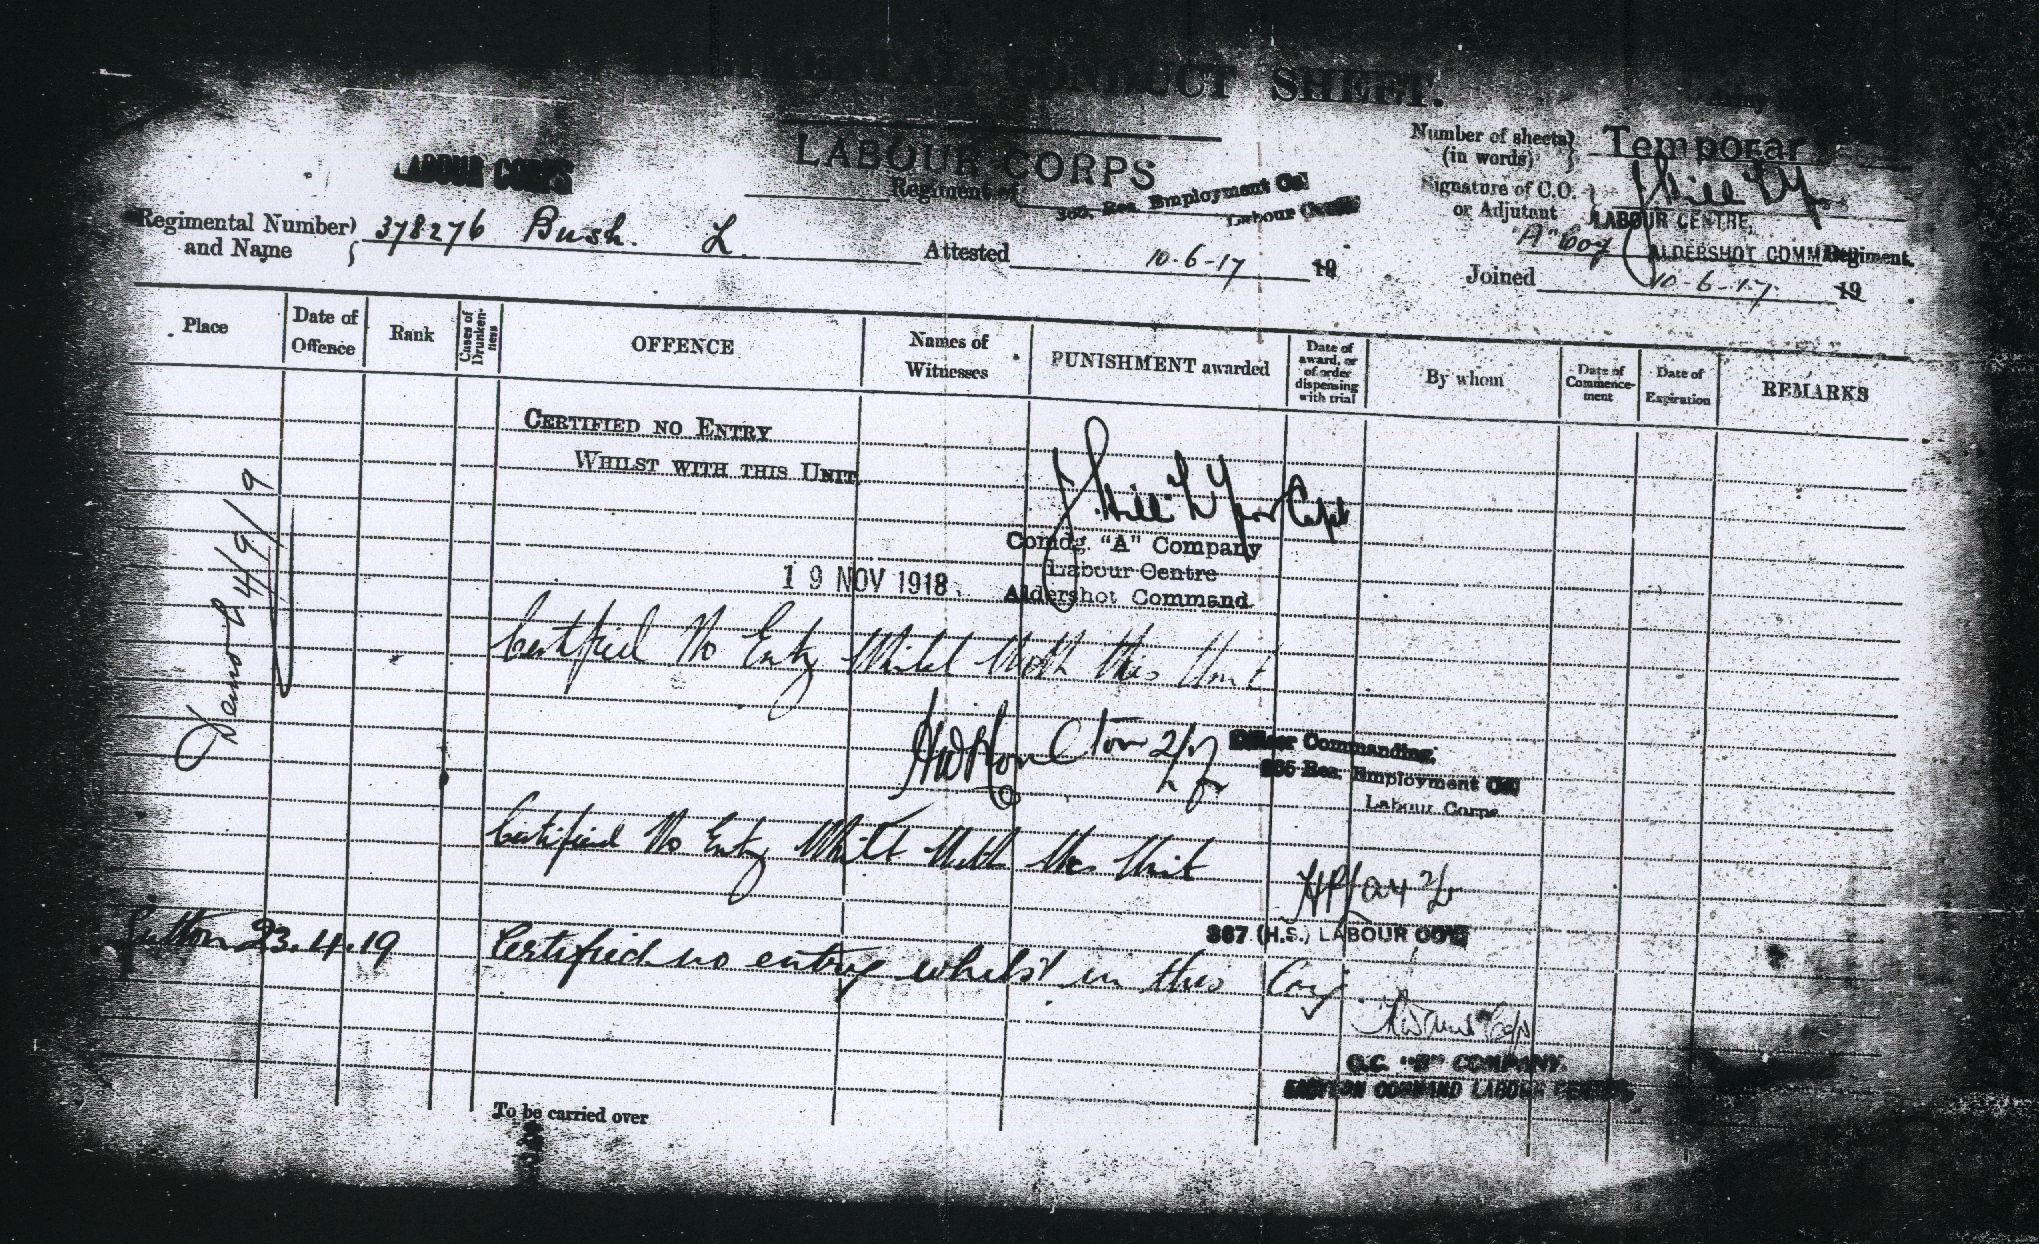 CONDUCT SHEET.
Number of sheets (in words) Temporary
LABOUR CORPS
LABOUR CORPS
Regiment of Res. Employment Co.
Labour
Signature of C.O. or Adjutant
LABOUR CENTRE,
"A" Coy ALDERSHOT COMMAND Regiment.
Regimental Number and Name 378276 Bush. L. Attested 10-6-17 19 Joined 10-6-17 19
Place Date of Offence Rank Cases of Drunkenness OFFENCE Names of Witnesses PUNISHMENT awarded Date of award, or of order dispensing with trial By whom Date of Commencement Date of Expiration REMARKS
CERTIFIED NO ENTRY
WHILST WITH THIS UNIT
Capt
Comdg. "A" Company
Labour Centre
Aldershot Command.
19 NOV 1918
Certified No Entry Whilst With This Unit
Officer Commanding,
Res. Employment Co.
Labour Corps
Certified No Entry Whilst With this Unit
367 (H.S.) LABOUR COY
Sutton 23.4.19 Certified no entry whilst in this Coy.
O.C. "B" COMPANY.
EASTERN COMMAND LABOUR CENTRE.
To be carried over